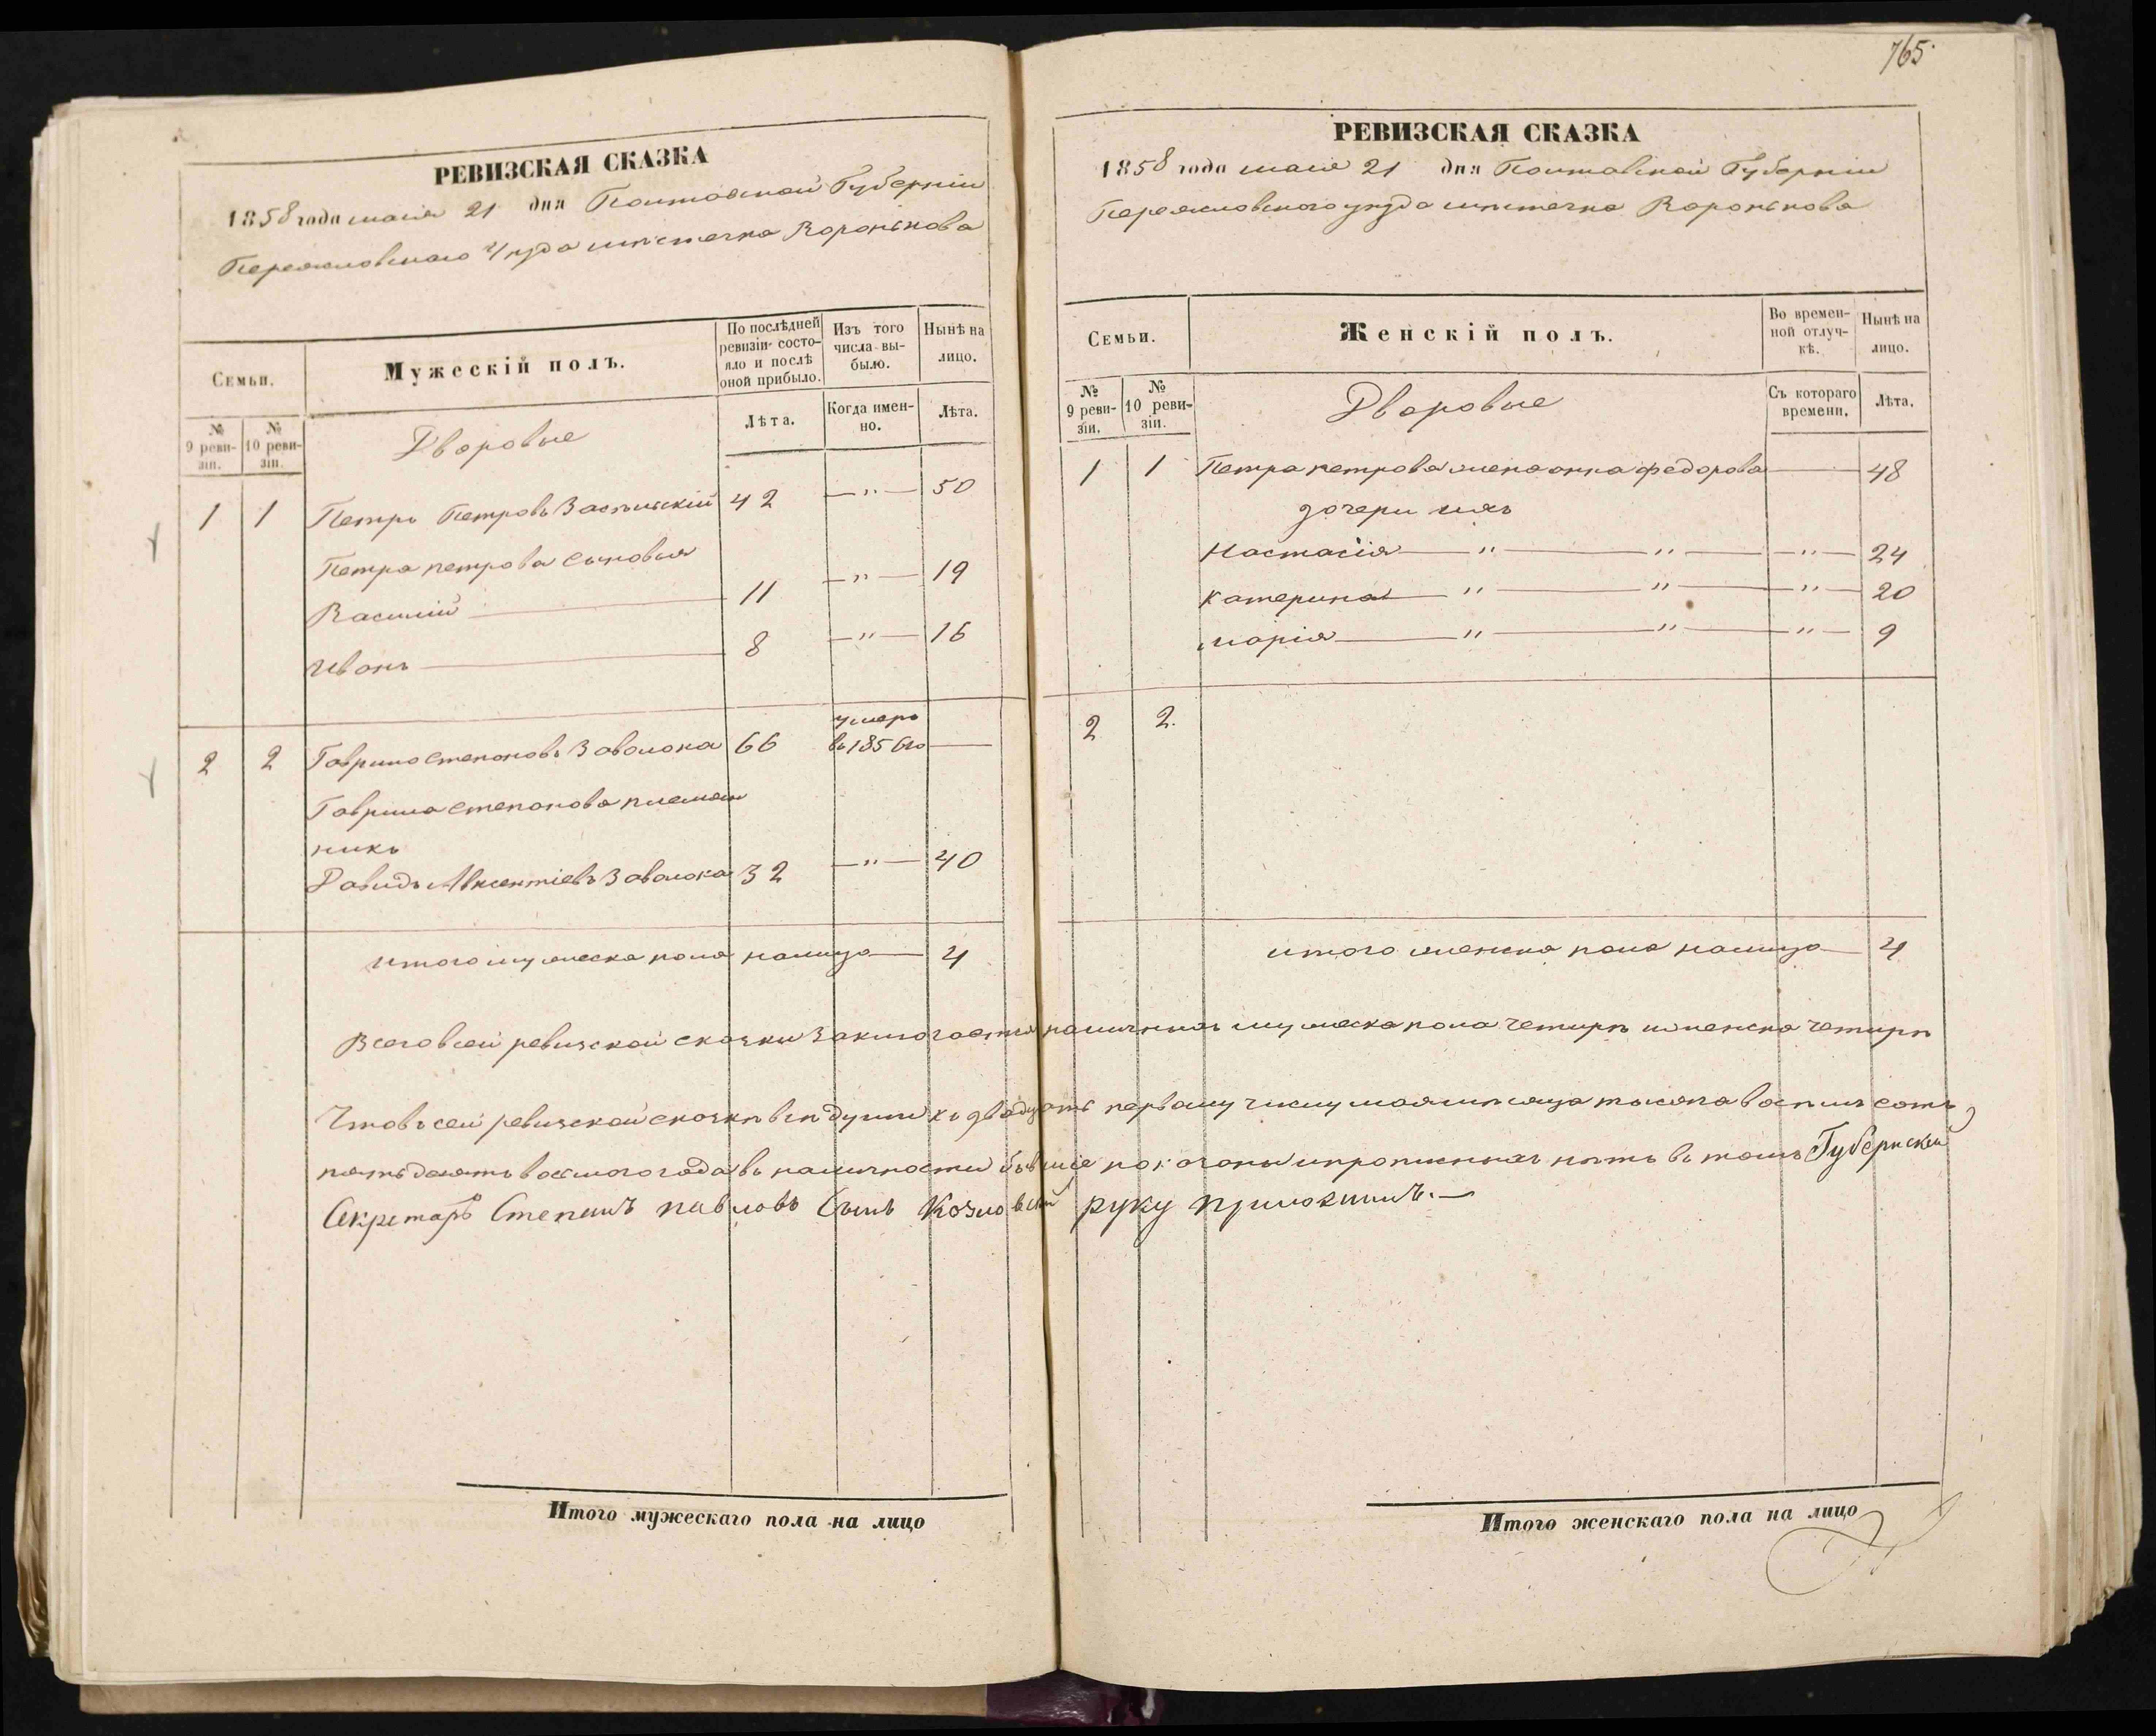 765
РЕВИЗСКАЯ СКАЗКА
1858 года маія 21 дня Полтавской Губерніи
Переяславскаго Уезда местечка Воронькова
Семьи.
Мужескій полъ.
По послѣдней ревизіи состояло и послѣ оной прибыло.
Изъ того числа выбыло.
Нынѣ на лицо.
№ 9 ревизіи.
№ 10 ревизіи.
Дворовые
Лѣта.
Когда именно.
Лѣта.
1 1 Петръ Петровъ 42 —"— 50
Петра петрова сыновья
Василій 11 —"— 19
Иванъ 8 —"— 16
умеръ
2 2 Гаврило Степановъ Заволока 66 въ 1856го —
Гаврила степанова племян
никъ
Давидъ Авксентіевъ Заволока 32 —"— 40
итого мужеска пола налицо — 4
РЕВИЗСКАЯ СКАЗКА
1858 года маія 21 дня Полтавской Губерніи
Переяславского уезда местечка Воронькова
Семьи.
Женскій полъ.
Во временной отлучкѣ.
Нынѣ на лицо.
№ 9 ревизіи.
№ 10 ревизіи.
Дворовые
Съ котораго времени.
Лѣта.
1 1 Петра петрова жена анна федорова — 48
дочери ихъ
Настасія — " — " — " — 24
Катерина — " — " — " — 20
марія — " — " — " — 9
2 2.
итого женска пола налицо — 4
Всего всей ревизской сказки заключается наличныхъ мужеска пола четырѣ иженска четырѣ
Что въ сей ревизской сказкѣ всѣ души къ двадцать первому числу мая мѣсяца тысяча восѣмъ сотъ
пятьдесятъ восмого года въ наличности бывшіе показаны и прописныхъ нѣтъ въ томъ Губернскій
Секретарь Степанъ павловъ Сынъ Козловскій руку приложилъ.—
Итого мужескаго пола на лицо
Итого женскаго пола на лицо